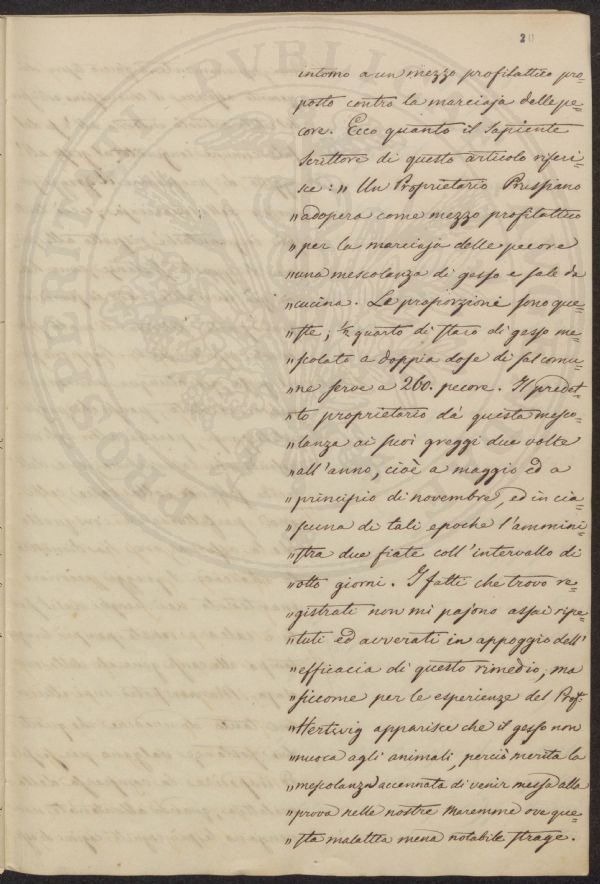 2
intorno a un mezzo profilattico pro=
posto contro la marciaja delle pe=
core. Ecco quanto il Sapiente
Scrittore di questo articolo riferi=
sce: " Un Proprietario Prussiano
" adopera come mezzo profilattico
" per la marciaja delle pecore
" una mescolanza di gesso e sale da
" cucina. Le proporzioni sono que=
" ste; ½ quarto di staro di gesso me=
" scolato a doppia dose di sal comu=
" ne serve a 260. pecore. Il predet=
" to proprietario dà questa mesco=
" lanza ai suoi greggi due volte
" all'anno, cioè a maggio ed a
" principio di novembre, ed in cia=
" scuna di tali epoche l'ammini=
" stra due fiate coll'intervallo di
" otto giorni. I fatti che trovo re=
" gistrati non mi pajono assai ripe=
" tuti ed avverati in appoggio dell'
" efficacia di questo rimedio, ma
" siccome per le esperienze del Prof.
" Hertwig apparisce che il gesso non
" nuoca agli animali, perciò merita la
" mescolanza accennata di venir messa alla
" prova nelle nostre Maremme ove que=
" sta malattia mena notabile strage.